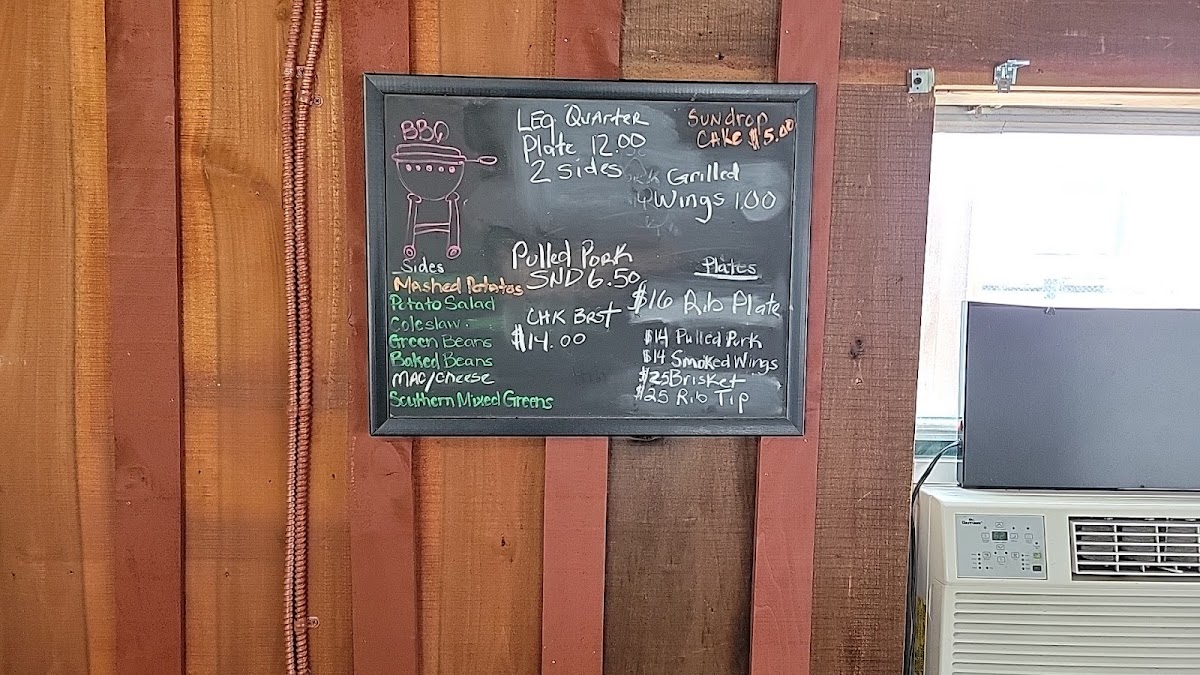 BBQ
LEG QUARTER
Plate 12.00
2 sides
Sundrop
CAKE $5.00
Grilled
Wings 1.00
Sides
MASHED Potatos
Potato Salad
Coleslaw
Green Beans
Baked Beans
MAC/Cheese
Southern Mixed Greens
Pulled Pork
SND 6.50
CHK BRST
$14.00
Plates
$16 Rib Plate
$14 Pulled Pork
$14 Smoked Wings
$25 Brisket
$25 Rib Tip